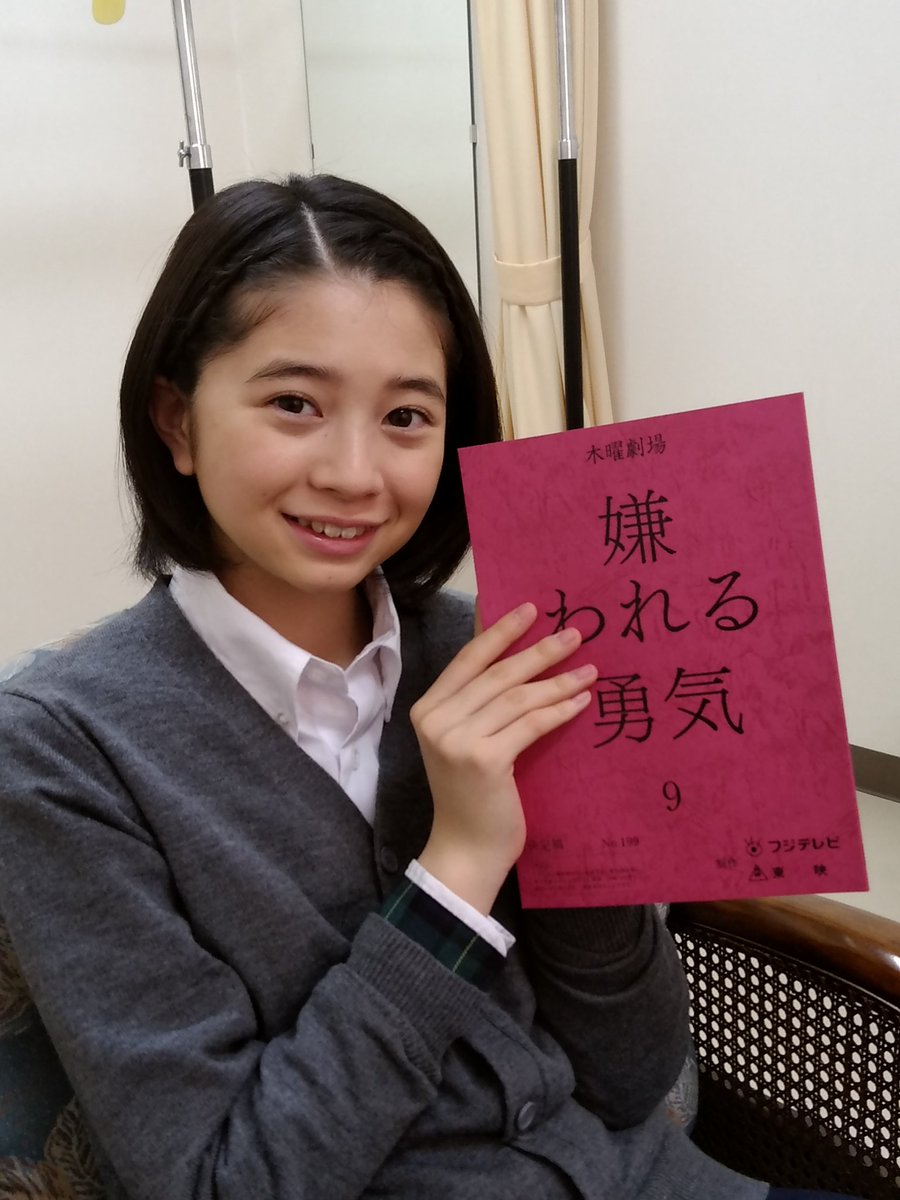 木曜劇場
嫌
われる
勇気
9
決定稿 No 199
制作 フジテレビ
東映